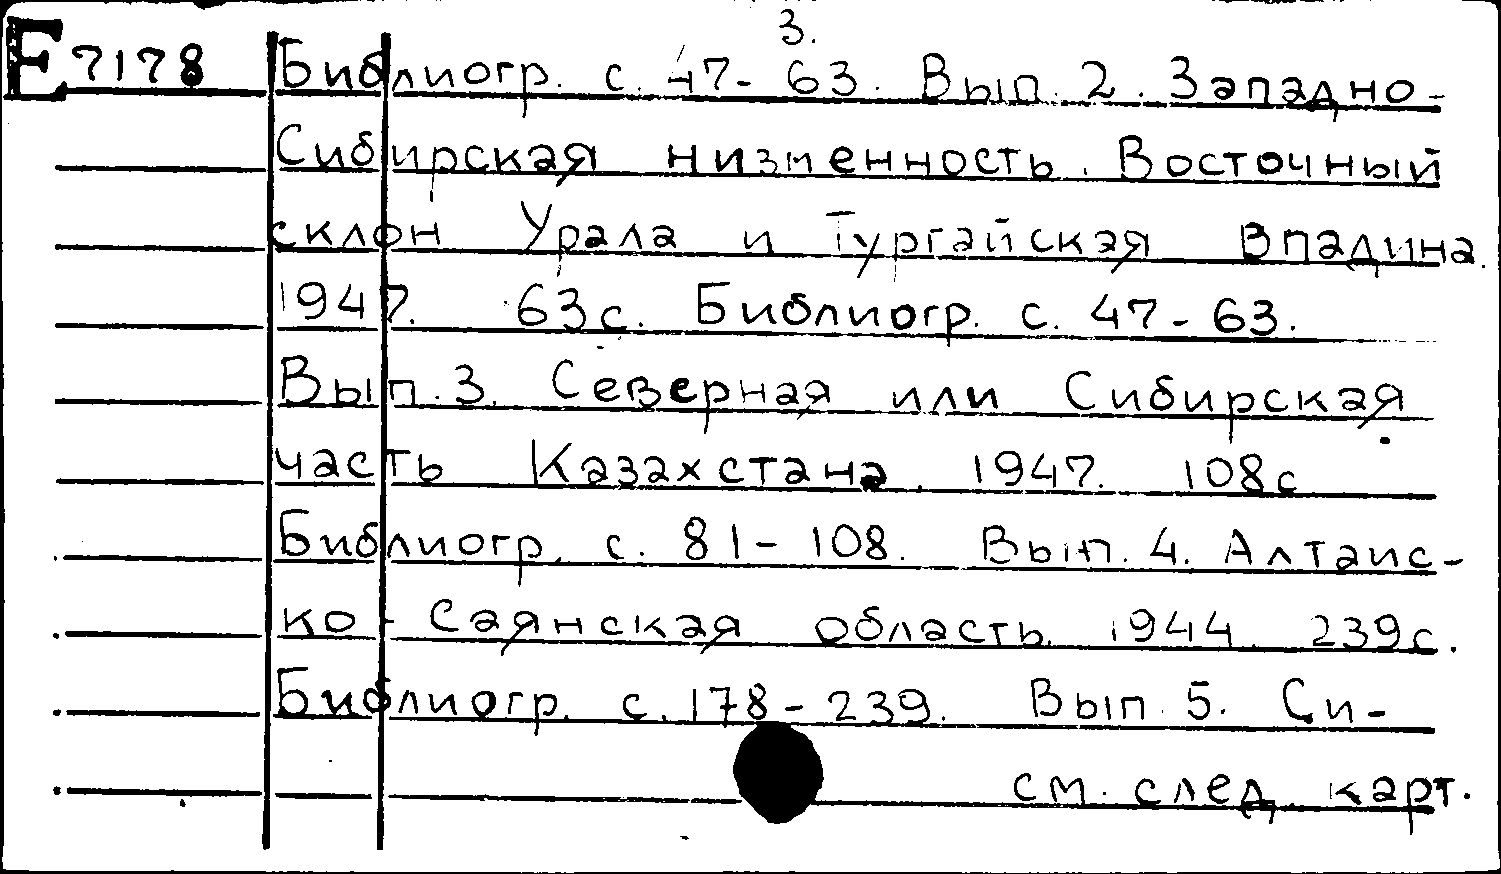 3.
E 7178 Библиогр. с. 47-63. Вып. 2. Западно-
Сибирская низменность. Восточный
склон Урала и Тургайская впадина.
1947. 63с. Библиогр. с. 47-63.
Вып. 3. Северная или Сибирская
часть Казахстана. 1947. 108с
Библиогр. с. 81-108. Вып. 4. Алтаис-
ко-Саянская область. 1944. 239с.
Библиогр. с. 178-239. Вып. 5. Си-
см. след. карт.